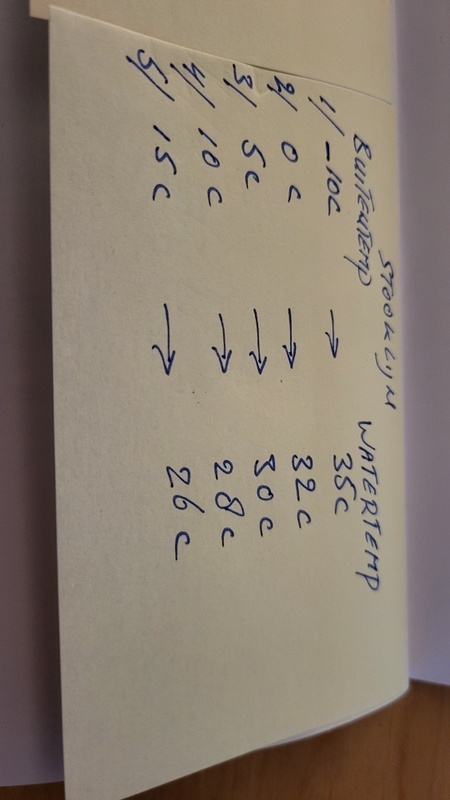 STOOKLIJN
BUITENTEMP WATERTEMP
1/ -10C → 35C
2/ 0C → 32C
3/ 5C → 30C
4/ 10C → 28C
5/ 15C → 26C